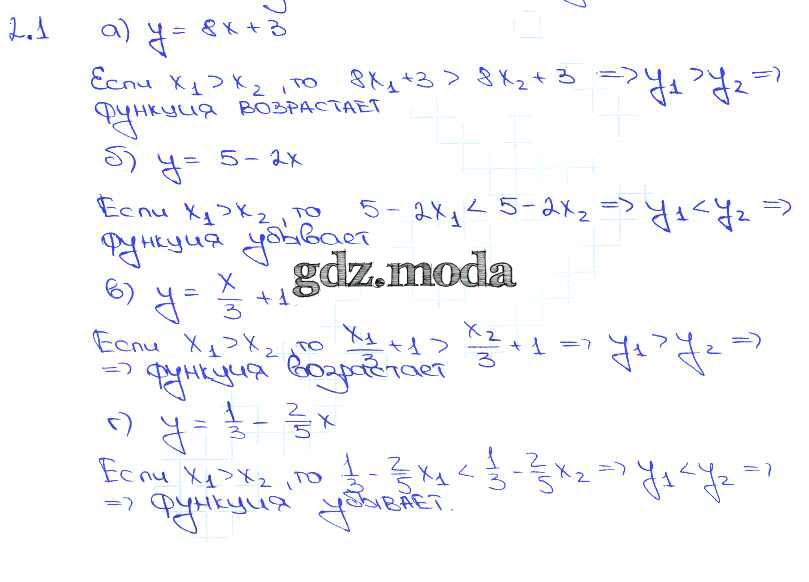 2.1 а) y = 8x + 3
Если x₁ > x₂, то 8x₁ + 3 > 8x₂ + 3 => y₁ > y₂ =>
функция возрастает
б) y = 5 - 2x
Если x₁ > x₂, то 5 - 2x₁ < 5 - 2x₂ => y₁ < y₂ =>
функция убывает
gdz.moda
в) y = x/3 + 1.
Если x₁ > x₂, то x₁/3 + 1 > x₂/3 + 1 => y₁ > y₂ =>
=> функция возрастает
г) y = 1/3 - 2/5 x
Если x₁ > x₂, то 1/3 - 2/5 x₁ < 1/3 - 2/5 x₂ => y₁ < y₂ =>
=> функция убывает.